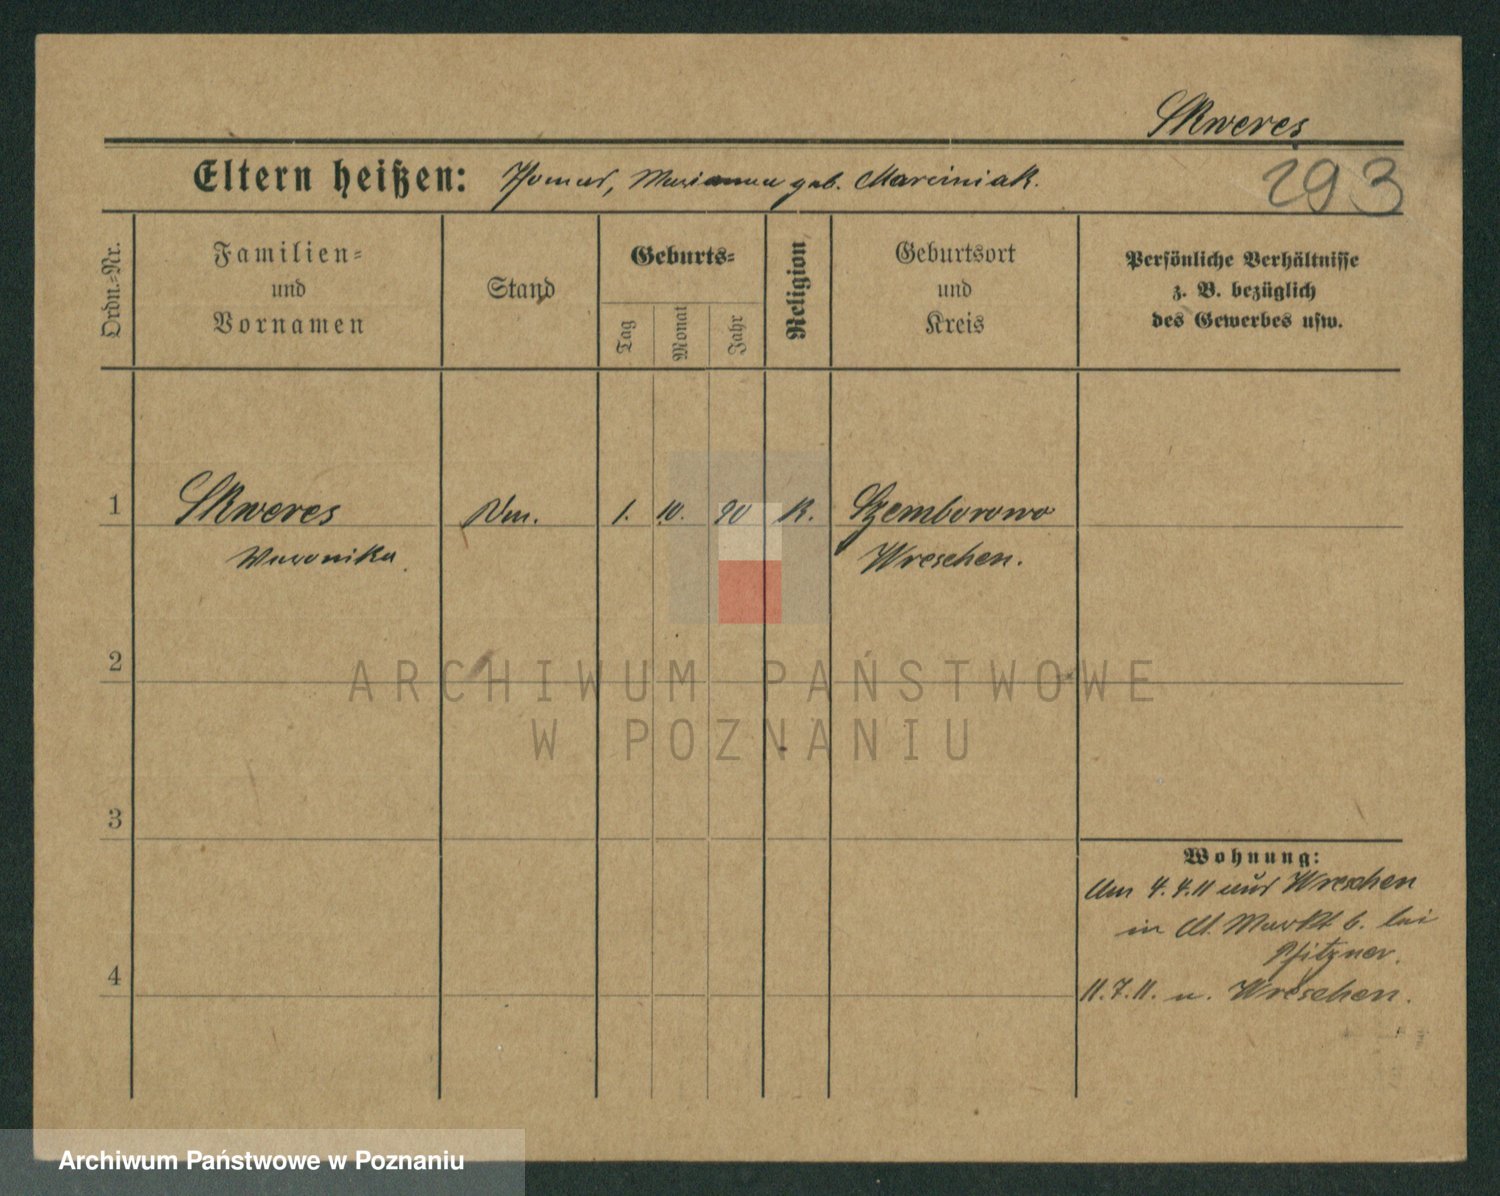 Skweres
293
Eltern heißen: Thomas, Marianna geb. Marciniak.
Ordn.-Nr.
Familien-
und
Vornamen
Stand
Geburts-
Tag
Monat
Jahr
Religion
Geburtsort
und
Kreis
Persönliche Verhältnisse
z. B. bezüglich
des Gewerbes usw.
1 Skweres 1. 10. 90 K. Szemborowo
Weronika Wreschen.
2
3
4
Wohnung:
Am 4.4.11 aus Wreschen
in Alt. Markt 6. bei
Pfitzner.
11.7.11. n. Wreschen.
ARCHIWUM PAŃSTWOWE
W POZNANIU
Archiwum Państwowe w Poznaniu